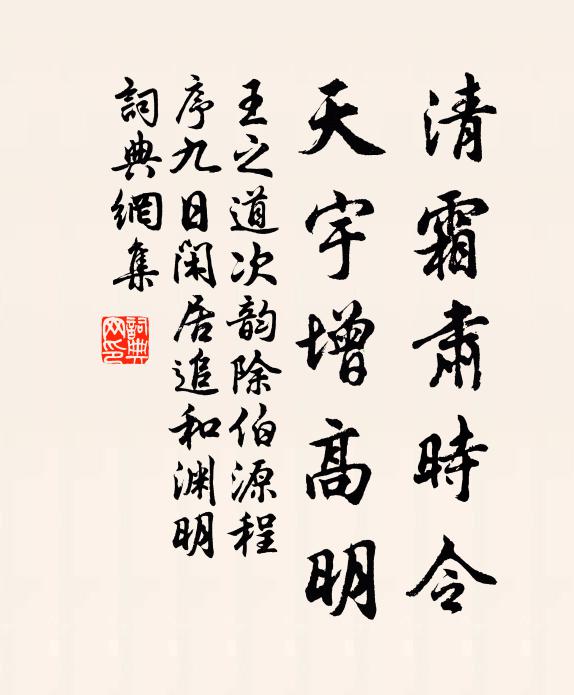 清霜肅時令
天宇增高明
王之道次韵除伯源程
序九日閑居追和渊明
詞典網集
詞典网印